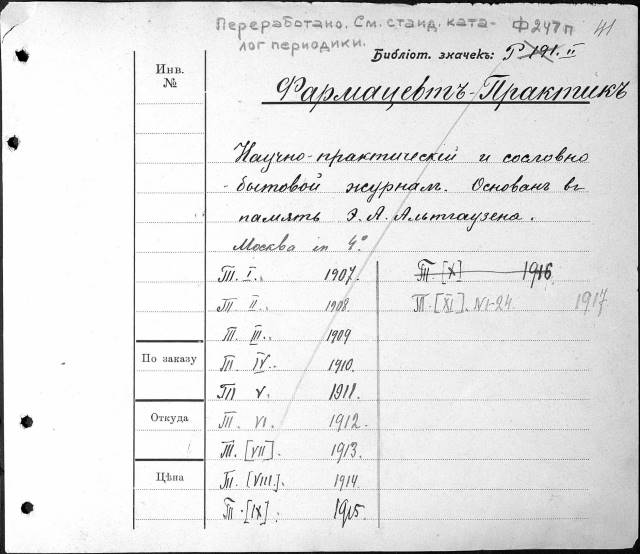 Переработано. См. станд. ката- Ф247п 41
лог периодики.
Библіот. значекъ: Р 191. II
Инв.
№
Фармацевтъ-Практикъ
Научно-практическій и сословно
-бытовой журналъ. Основанъ въ
память Э. А. Альтгаузена.
Москва in 4°
Т. I. 1907.
Т. II. 1908.
Т. III. 1909
Т. IV. 1910.
Т. V. 1911.
Т. VI. 1912.
Т. [VII]. 1913.
Т. [VIII]. 1914.
Т. [IX]. 1915.
Т. [X] 1916.
Т. [XI]. №1-24 1917
По заказу
Откуда
Цѣна